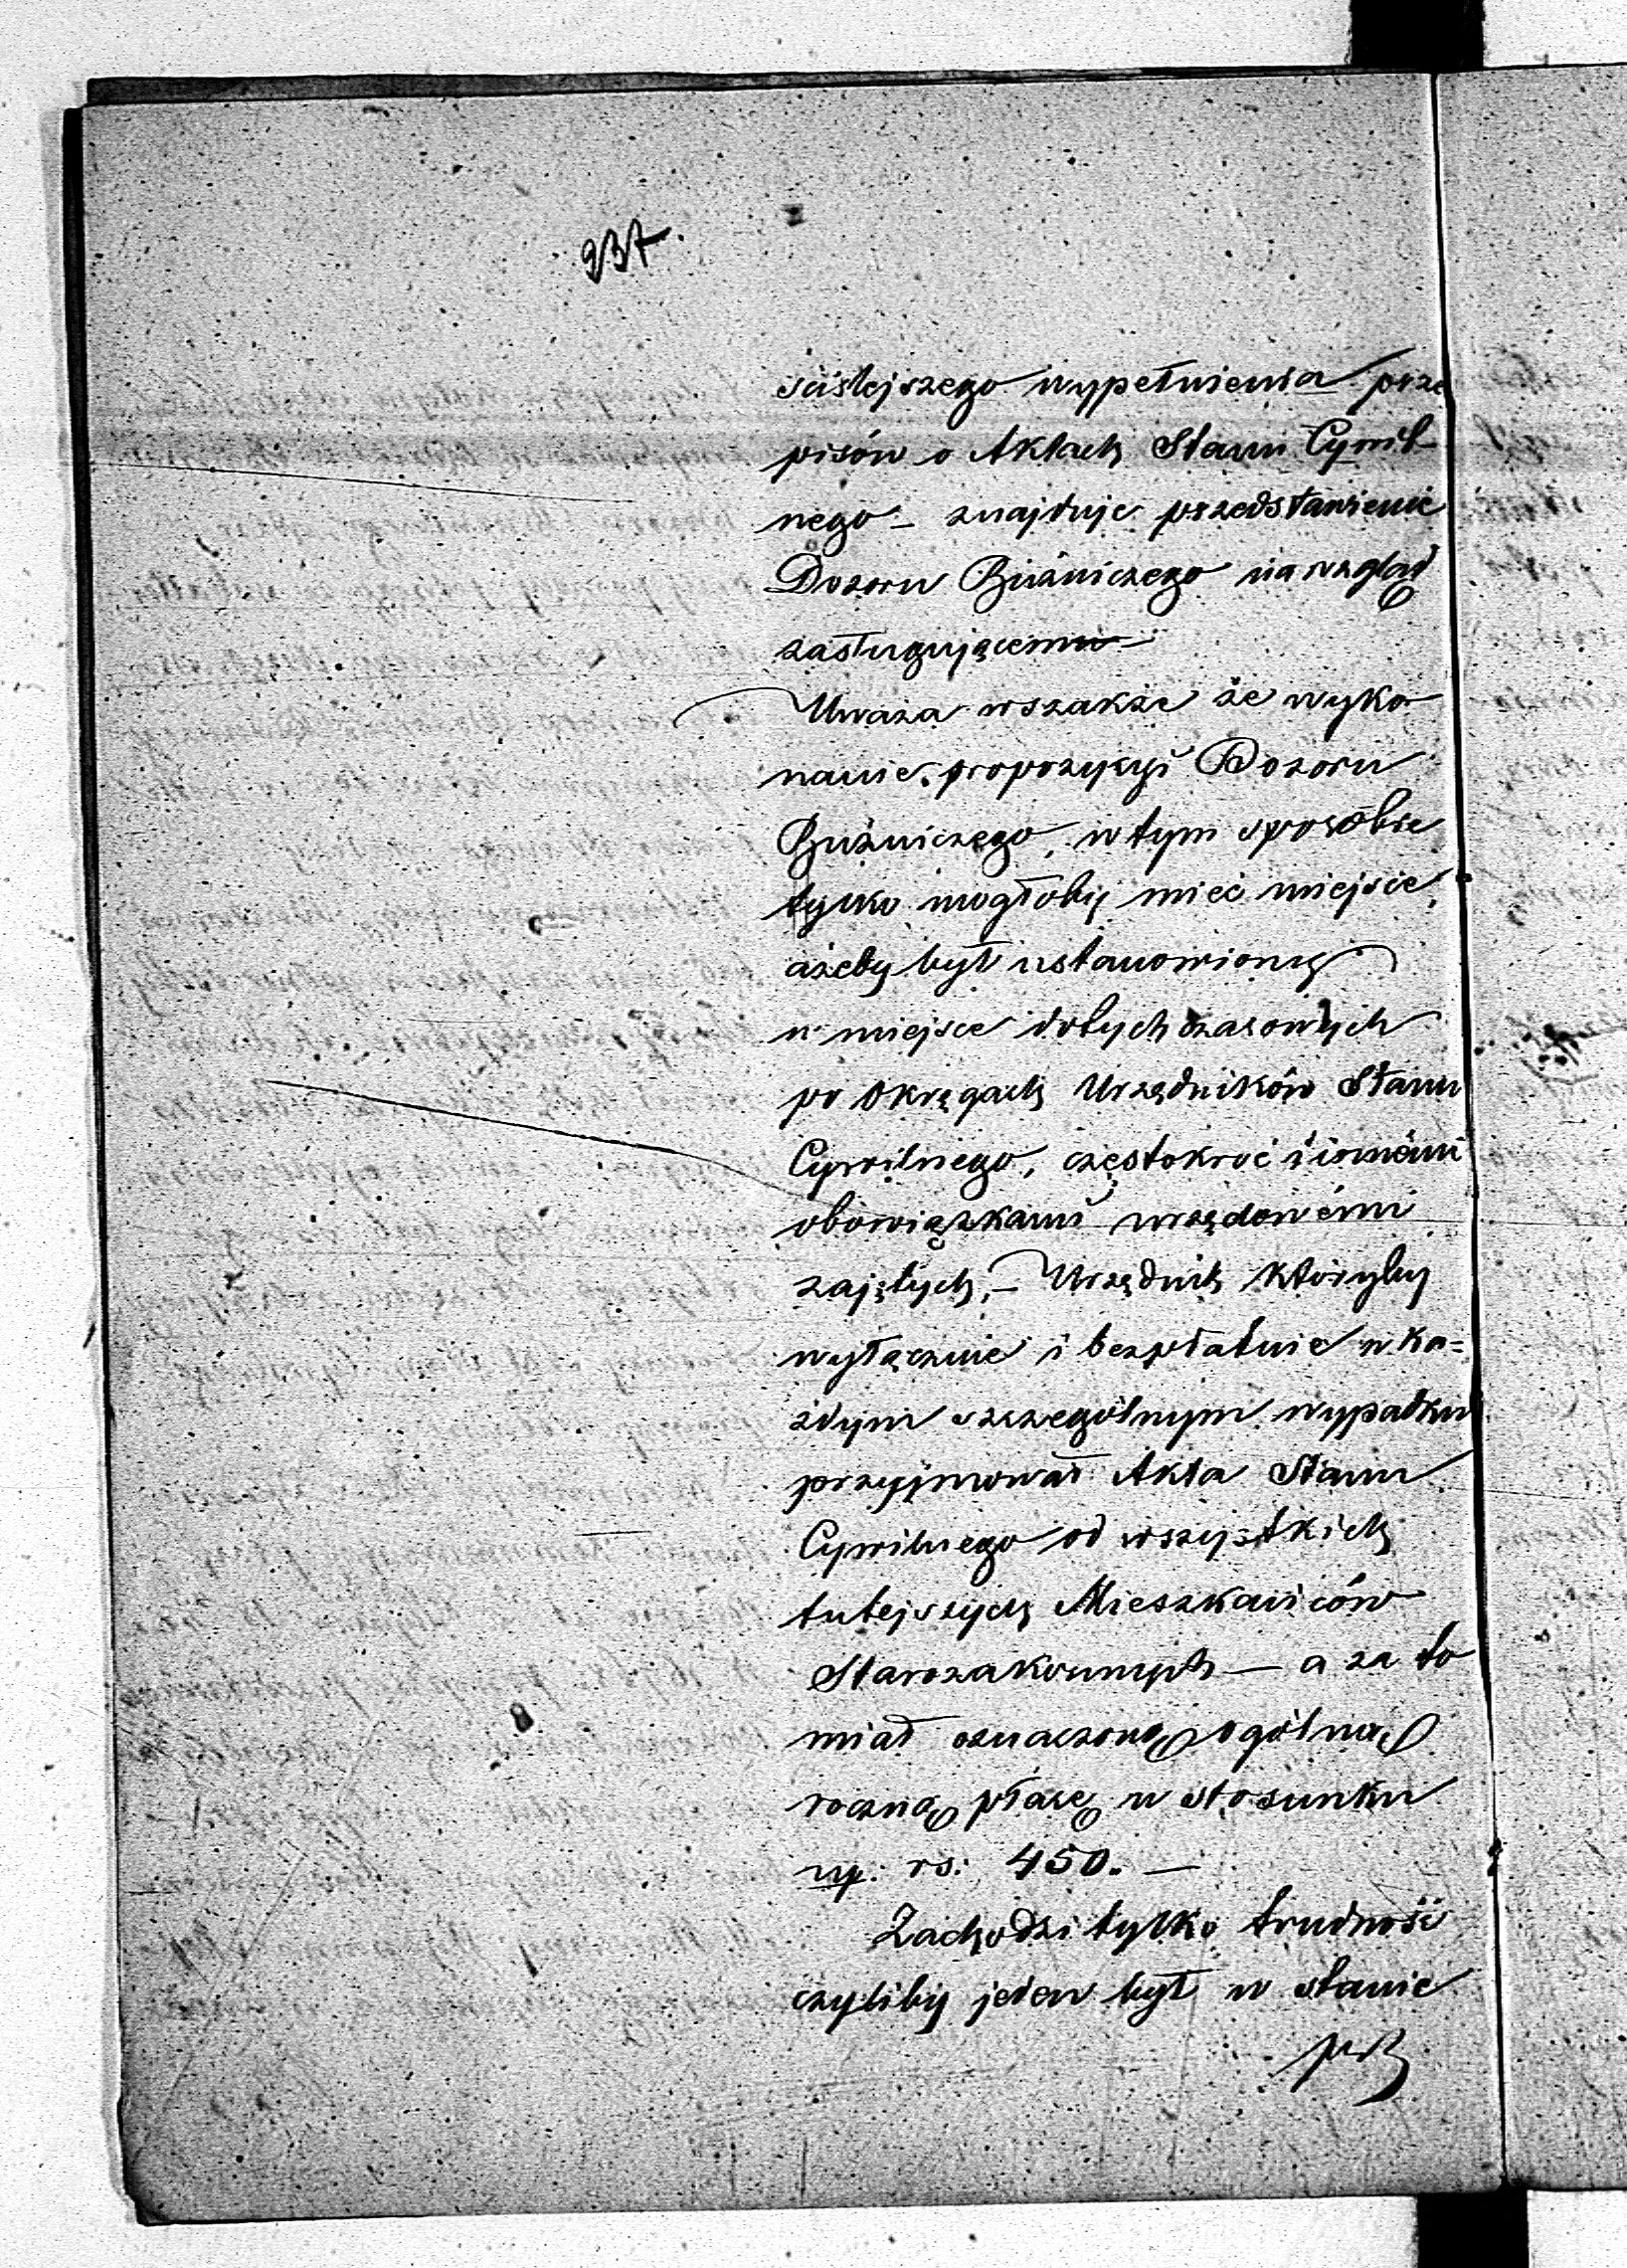 237.
ściślejszego wypełnienia prze
pisów o Aktach Stanu Cywil-
nego – znajduje przedstawienie
Dozoru Bóżniczego na wzgląd
zasługującemu –
Uważa wszakże że wyko
nanie propozycyi Dozoru
Bóżniczego, w tym sposobie
tylko mogłoby mieć miejsce,
ażeby był ustanowiony
w miejsce dotychczasowych
po Okręgach Urzędników Stanu
Cywilnego, częstokroć i innémi
obowiązkami urzędowémi
zajętych, – Urzędnik któryby
wyłącznie i bezpłatnie w ka=
żdym szczególnym wypadku
przyjmował Akta Stanu
Cywilnego od wszystkich
tutejszych Mieszkańców
Starozakonnych — a za to
miał oznaczoną ogólną
roczną płacę w stosunku
np. rs: 450. —
Zachodzi tylko trudność
czyliby jeden był w stanie